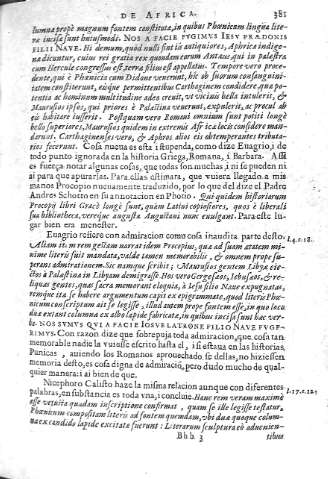 DE AFRICA. 381
lumnæ propè magnum fontem constitutæ, in quibus Phœnicum lingua lite-
ræ incisæ sunt huiusmodi. NOS A FACIE FVGIMVS IESV PRÆDONIS
FILII NAVE. Hi demum, quòd nulli sint iis antiquiores, Aphricæ indige-
næ dicuntur, cuius rei gratia rex quondam eorum Antæus, qui in palæstra
cum Hercule congressus est, terræ filius est appellatus. Tempore verò proce-
dente, qui è Phœnicia cum Didone venerunt, hic ob suorum consanguini-
tatem constiterunt, eisque permittentibus Carthaginem condidere, qua po-
tentia ac hominum multitudine adeo crevit, ut vicinis bella intulerit, &
Maurusios ipsos, qui priores è Palæstina venerunt, expulerit, ac procul ab
eis habitare iusserit. Postquam verò Romani omnium sunt potiti longè
bello superiores, Maurusios quidem in extremis Africæ locis considere man-
darunt. Carthaginenses verò, & Aphros alios eis obtemperantes tributa-
rios fecerunt. Cosa nueua es esta i stupenda, como dize Euagrio, i de
todo punto ignorada en la historia Griega, Romana, i Barbara. Assi
es fuerça notar algunas cosas, que todas son muchas, i ni se pueden ni
ai para que apurarlas. Para ellas estimara, que vuiera llegado a mis
manos Procopio nueuamente traduzido, por lo que del dize el Padre
Andres Schotto en su annotacion en Photio. Qui quidem historiarum
Procopij libri Græcè longè sunt, quàm Latini copiosiores, quos è liberali
sua bibliotheca, vereque augusta Augustani nunc euulgant. Para este lu-
gar bien era menester.
Euagrio refiere con admiracion como cosa inaudita parte desto. l.4.c.18.
Aliam item rem gestam narrat idem Procopius, quæ ad suam ætatem mi-
nimè literis suit mandata, valde tamen memorabilis, & omnem propè su-
perans admirationem. Sic namque scribit; Maurusios gentem Libyæ eie-
ctos è Palæstina in Libyam demigrasse. Hos verò Gergesæos, Iebusæos, & re-
liquas gentes, quas sacræ memorant eloquia, à Iesu filio Naue expugnatas,
remque ita se habere argumentum capit ex epigrammate, quod literis Phœ-
nicum conscriptum ait se legisse, illud autem propè fontem esse, in quo loco
duæ extant columnæ ex albo lapide fabricatæ, in quibus incisa sunt hæc ver-
ba. NOS SVMVS QVI A FACIE IOSVE LATRONE FILIO NAVE FVGE-
RIMVS. Con razon dize que sobrepuja toda admiracion, que cosa tan
memorable nadie la vuiesse escrito hasta el, i si estaua en las historias,
Punicas, auiendo los Romanos aprouechadose dellas, no hiziessen
memoria desto, es cosa digna de admiraciō, pero dudo mucho de qual-
quier manera i ai bien de que.
Nicephoro Calisto haze la misma relacion aunque con diferentes l.17.c.12.
palabras, en substancia es toda vna, i concluie. Hanc rem veram maximè
esse vetusta quædam inscriptione confirmat, quam se ille legisse testatur,
Phœnicum compositam literis ad fontem quendam, vbi duæ quoque colum-
næ ex candido lapide excitatæ fuerunt: Literarum sculptura eò aduenien-
Bbb 3 tibus